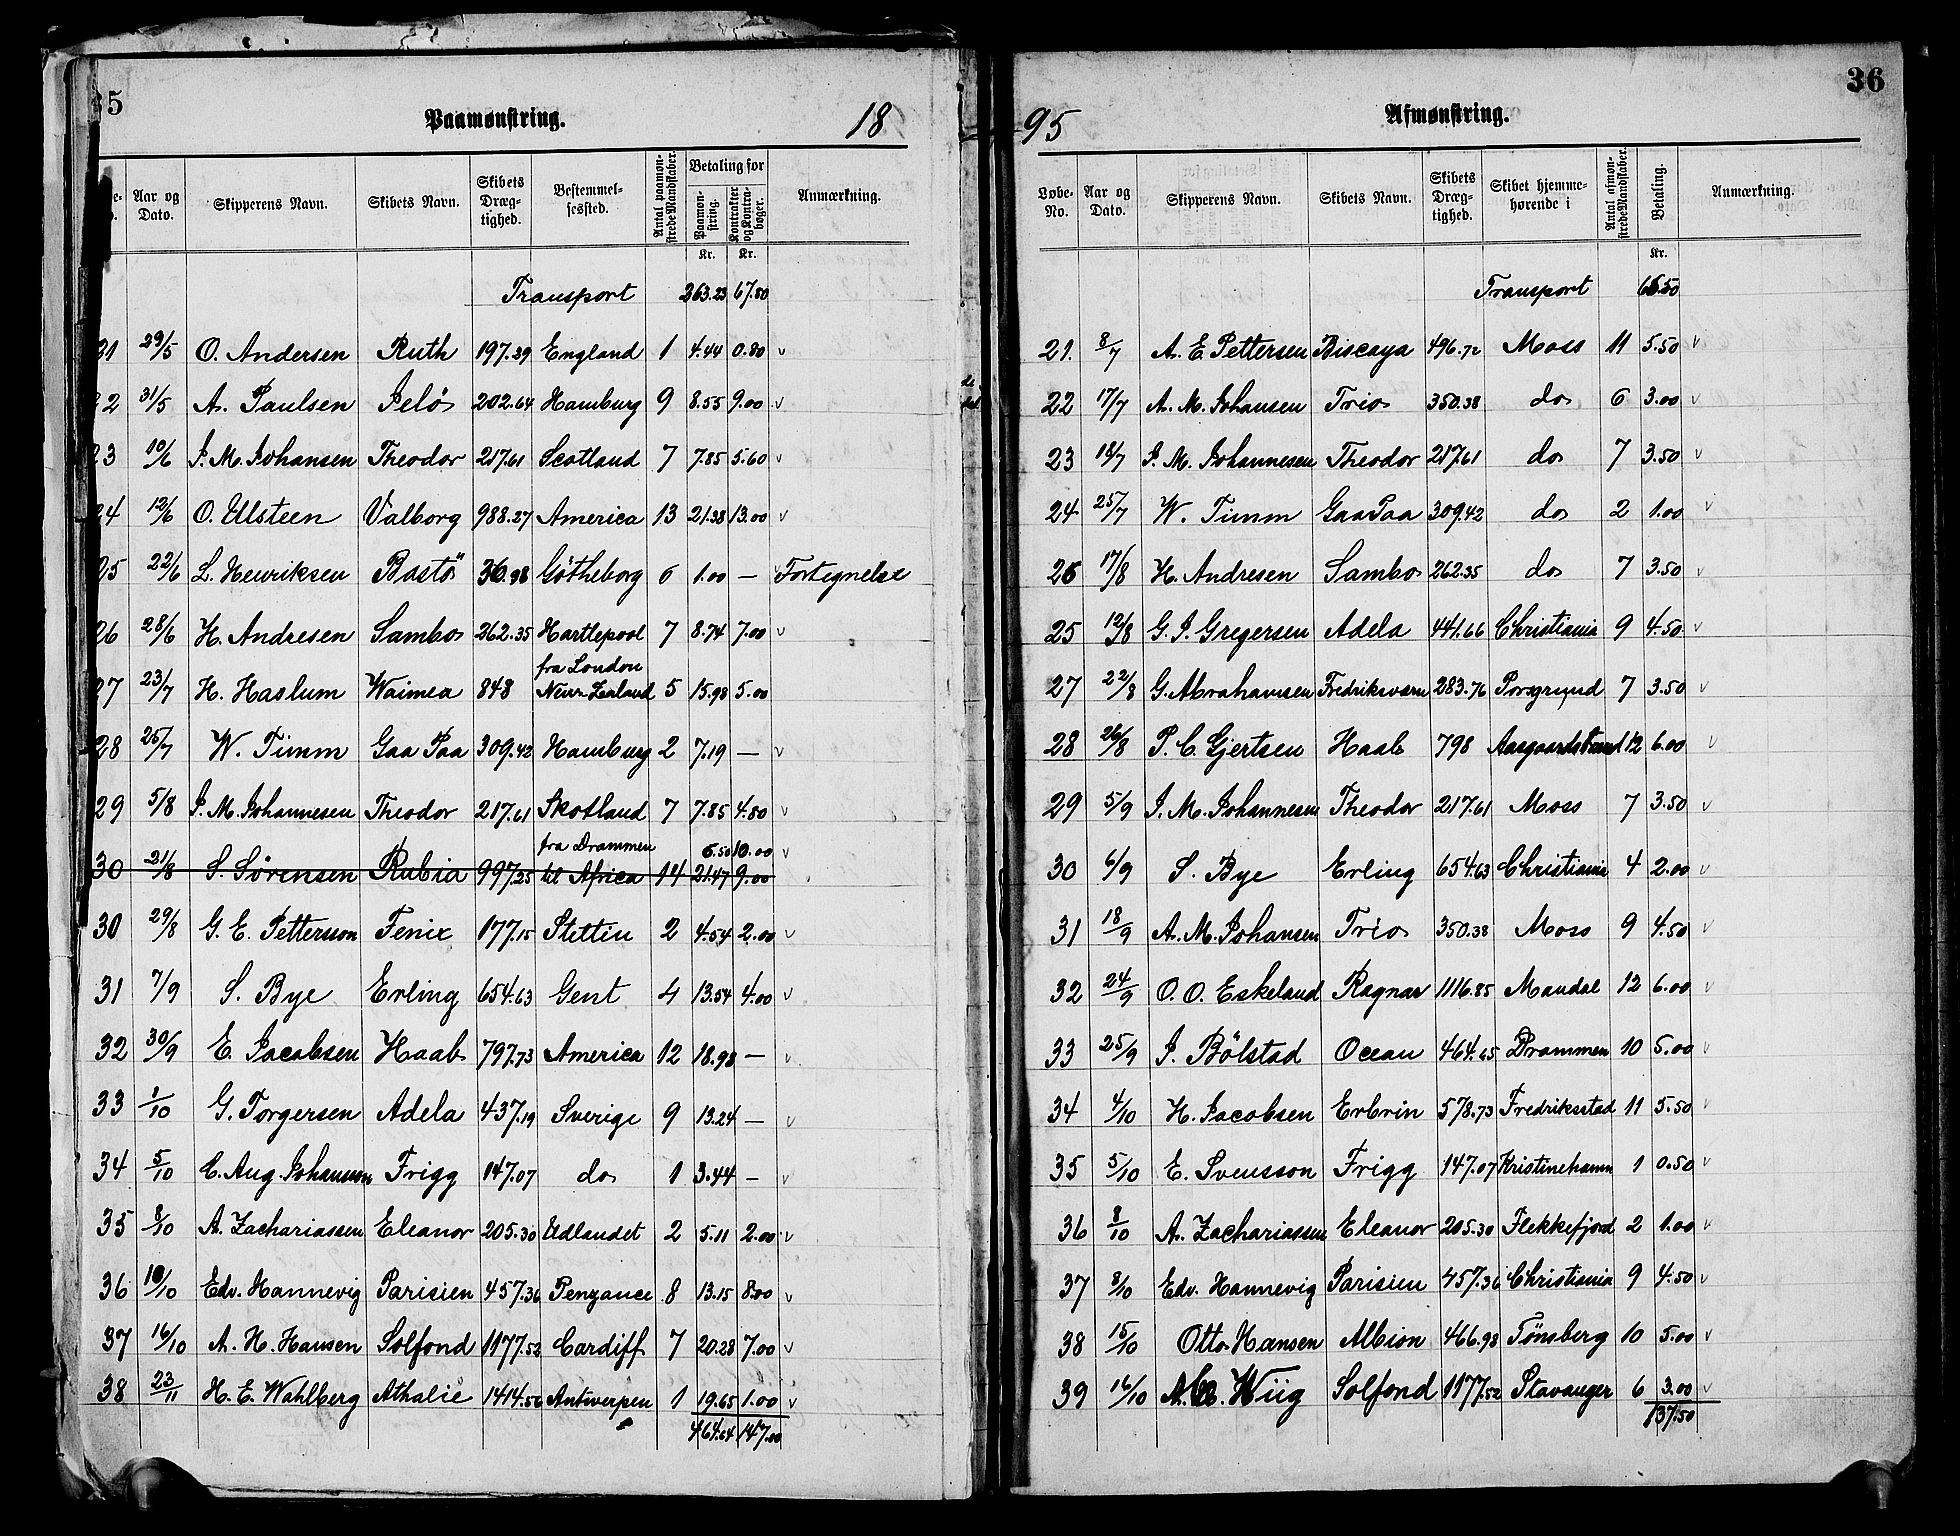 35
Paamønstring.
18
Aar og Dato.
Skipperens Navn.
Skibets Navn.
Skibets Drægtighed.
Bestemmelsessted.
Antal paamønstrede Mandskaber.
Betaling for
Paamønstring.
Kontrakter og Kontrabøger.
Anmærkning.
Kr. Kr.
Transport 263.23 67.80
21 29/5 O. Andersen Ruth 197.39 England 1 4.44 0.80 v
22 31/5 A. Paulsen Jelö 202.64 Hamburg 9 8.55 9.00 v
23 10/6 J. M. Johansen Theodor 217.61 Scotland 7 7.85 5.60 v
24 12/6 O. Ulsteen Valborg 988.27 America 13 21.38 13.00 v
25 22/6 L. Henriksen Bastö 36.98 Götheborg 6 1.00 — v Fortegnelse
26 28/6 H. Andresen Sambo 262.35 Hartlepool 7 8.74 7.00 v
fra London
27 23/7 H. Haslum Waimea 848 New Zealand 5 15.98 5.00
28 25/7 W. Timm Gaa Paa 309.42 Hamburg 2 7.19 — v
29 5/8 J. M. Johannesen Theodor 217.61 Skotland 7 7.85 4.80 v
fra Drammen 6.50 10.00 v
30 21/8 S. Sörensen Rubia 997.35 til Africa 14 21.47 9.00
30 29/8 G. E. Petterson Fenix 177.15 Stettin 2 4.54 2.00 v
31 7/9 S. Bye Erling 654.63 Gent 4 13.54 4.00 v
32 30/9 E. Jacobsen Haab 797.73 America 12 18.98 — v
33 1/10 G. Torgersen Adela 437.19 Sverige 9 13.24 — v
34 5/10 C. Aug. Johansson Frigg 147.07 do 1 3.44 — v
35 8/10 A. Zachariassen Eleanor 205.30 Udlandet 2 5.11 2.00 v
36 10/10 Edv. Hannevig Parisien 457.36 Penzance 8 13.15 8.00 v
37 16/10 A. H. Hansen Solfond 1177.52 Cardiff 7 20.28 7.00 v
38 23/11 H. E. Wahlberg Athalie 1414.56 Antwerpen 1 19.65 1.00 v
464.64 147.00
36
95
Afmønstring.
Løbe-No.
Aar og Dato.
Skipperens Navn.
Skibets Navn.
Skibets Drægtighed.
Skibet hjemmehørende i
Antal afmønstrede Mandskaber.
Betaling.
Anmærkning.
Kr.
Transport 66.50
21. 8/7 A. E. Pettersen Biscaya 496.72 Moss 11 5.50 v
22 17/7 A. M. Johansen Trio 350.38 do 6 3.00 v
23 18/7 J. M. Johannesen Theodor 217.61 do 7 3.50 v
24 25/7 W. Timm Gaa Paa 309.42 do 2 1.00 v
26 17/8 H. Andresen Sambo 262.35 do 7 3.50 v
25 12/8 G. J. Gregersen Adela 441.66 Christiania 9 4.50 v
27 22/8 G. Abrahamsen Fredriksværn 283.76 Porsgrund 7 3.50 v
28 26/8 P. C. Gjertsen Haab 798 Aasgaardstrand 12 6.00 v
29 5/9 J. M. Johannesen Theodor 217.61 Moss 7 3.50 v
30 6/9 S. Bye Erling 654.63 Christiania 4 2.00 v
31 18/9 A. M. Johansen Trio 350.38 Moss 9 4.50 v
32 24/9 O. O. Eskeland Ragnar 1116.85 Mandal 12 6.00 v
33 25/9 J. Bölstad Ocean 464.65 Drammen 10 5.00 v
34 4/10 H. Jacobsen Erbrin 578.73 Fredriksstad 11 5.50 v
35 5/10 E. Svensson Frigg 147.07 Kristinehamn 1 0.50 v
36 8/10 A. Zachariassen Eleanor 205.30 Flekkefjord 2 1.00 v
37 8/10 Edv. Hannevig Parisien 457.36 Christiania 9 4.50 v
38 15/10 Otto Hansen Albion 466.98 Tönsberg 10 5.00 v
39 16/10 A. Wiig Solfond 1177.52 Stavanger 6 3.00 v
137.50